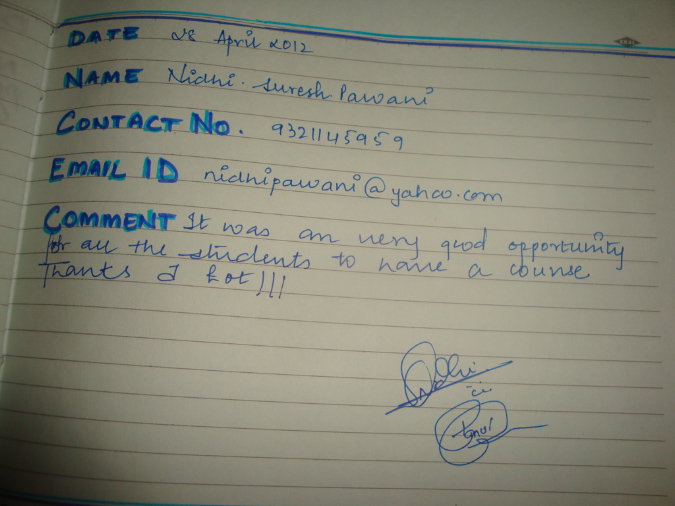 DATE 28 April 2012
NAME Nidhi. Suresh Pawani
CONTACT NO. 9321145959
EMAIL ID nidhipawani@yahoo.com
COMMENT It was an very good opportunity
for all the students to have a course
Thanks a lot!!!